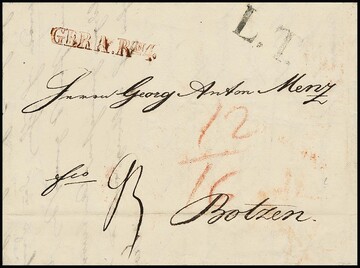 L.T.
Herrn Georg Anton Menz
12
16
fco
Botzen.